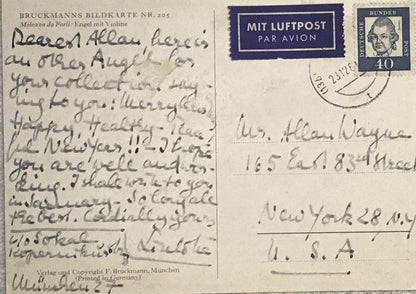 BRUCKMANNS BILDKARTE NR. 205
Melozzo da Forli: Engel mit Violine
Dearest Allan, here is
an other Angel for
your collection say-
ing to you: Merry Xmas
Happy, Healthy - Peace
ful New Year!! - I hope
you are well and wor-
king. I shall write to you
in January - So long all
the best. Cordially yours
c/o Sokal
Kopernikusstr
München 27
Verlag und Copyright F. Bruckmann, München
(Printed in Germany)
MIT LUFTPOST
PAR AVION
DEUTSCHE
BUNDES
40
Mr. Allan Wayne
165 East 83rd Street
New York 28 N.Y.
U. S. A